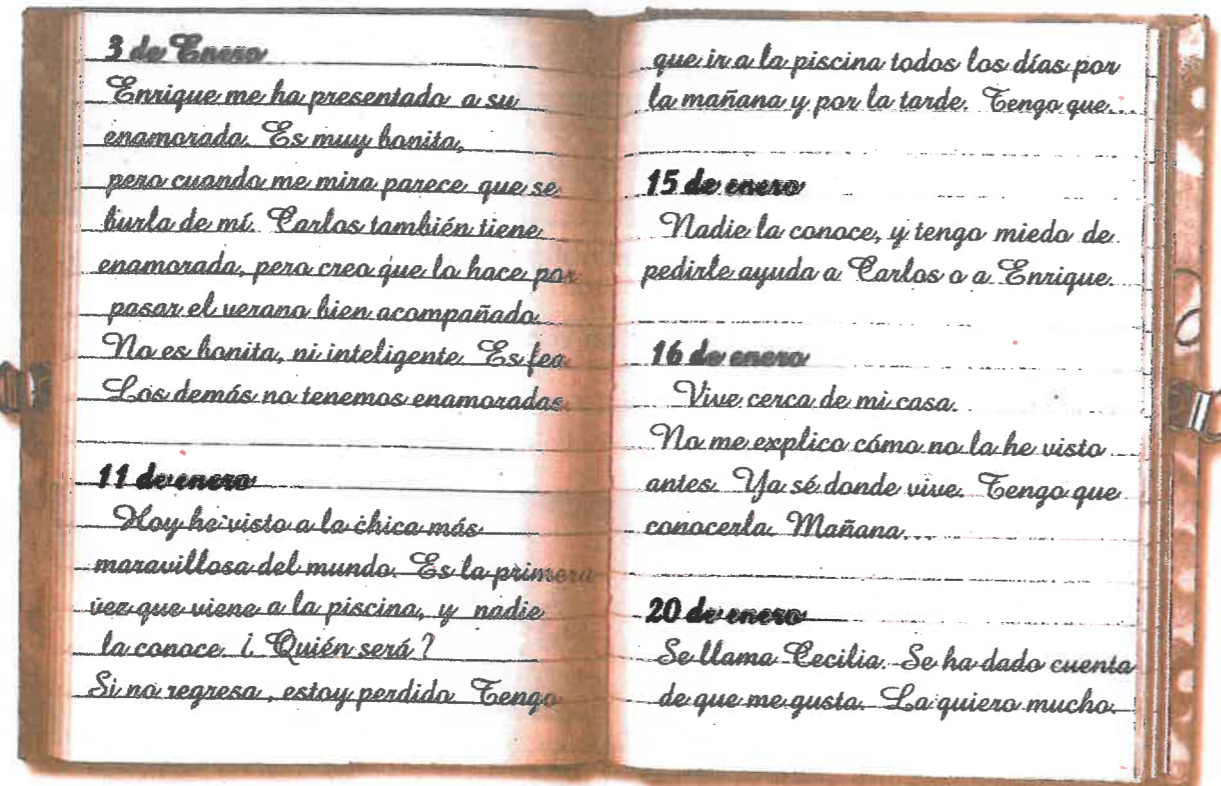 3 de Enero
Enrique me ha presentado a su
enamorada. Es muy bonita,
pero cuando me mira parece que se
burla de mí. Carlos también tiene
enamorada, pero creo que lo hace por
pasar el verano bien acompañado.
No es bonita, ni inteligente. Es fea.
Los demás no tenemos enamoradas.
11 de enero
Hoy he visto a la chica más
maravillosa del mundo. Es la primera
vez que viene a la piscina, y nadie
la conoce. ¿ Quién será ?
Si no regresa , estoy perdido. Tengo
que ir a la piscina todos los días por
la mañana y por la tarde. Tengo que...
15 de enero
Nadie la conoce, y tengo miedo de
pedirle ayuda a Carlos o a Enrique.
16 de enero
Vive cerca de mi casa.
No me explico cómo no la he visto
antes. Ya sé donde vive. Tengo que
conocerla. Mañana...
20 de enero
Se llama Cecilia. Se ha dado cuenta
de que me gusta. La quiero mucho.